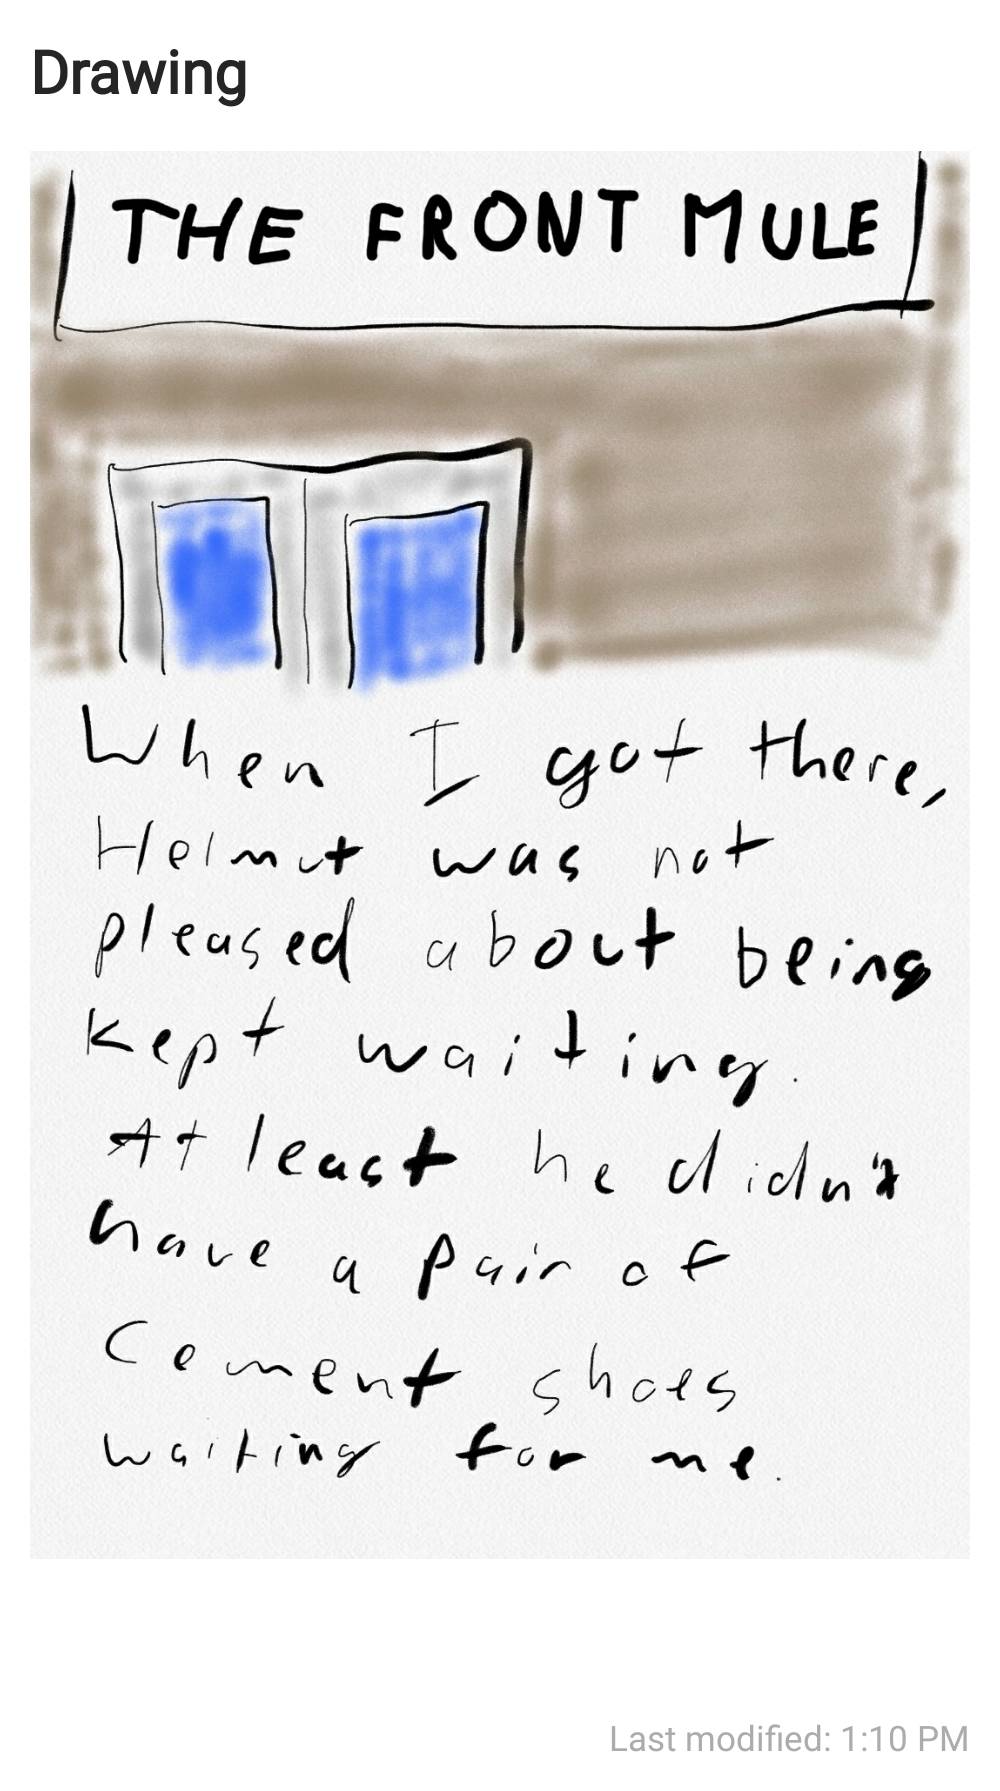 Drawing
THE FRONT MULE
When I got there,
Helmut was not
pleased about being
kept waiting.
At least he didn't
have a pair of
cement shoes
waiting for me.
Last modified: 1:10 PM